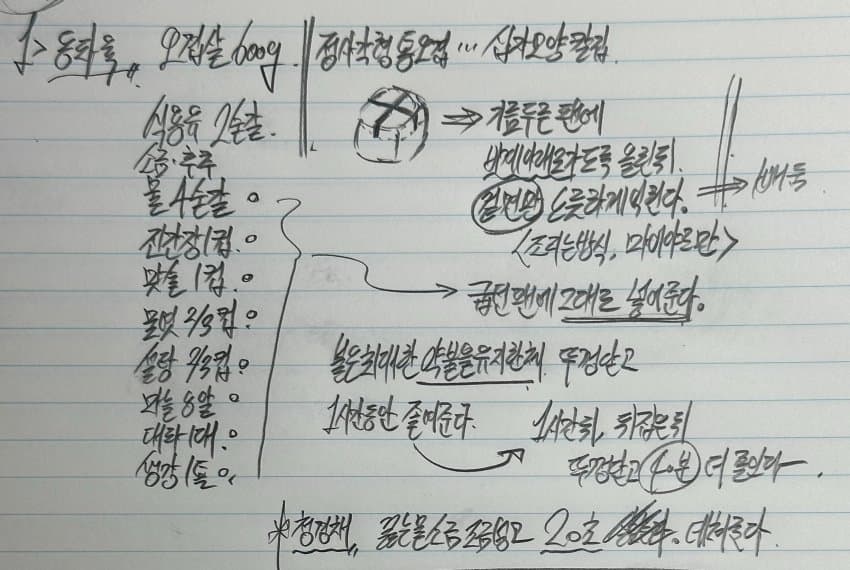 1> 동파육,, 오겹살 600g.
식용유 2숟갈.
소금·후추
물 4숟갈
진간장 1컵.
맛술 1컵.
물엿 2/3컵.
설탕 2/3컵.
마늘 8알
대파 1대.
생강 1톨.
정사각형 통오겹… 십자모양 칼집.
⇒ 기름두른 팬에
껍데기 아래로 가도록 올린 뒤.
겉면만 노릇하게 익힌다. ⇒
<조리는방식, 마이야르만>
→ 굽던 팬에 그대로 넣어준다.
불은 최대한 약불을 유지한 채. 뚜껑닫고
1시간동안 졸여준다.
1시간 뒤, 뒤집은 뒤
뚜껑닫고 40분 더 졸인다.
*청경채,, 끓는물 소금 조금 넣고 20초 데쳐준다.